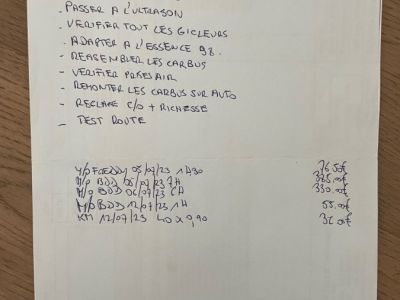 - PASSER A L'ULTRASON
. VERIFIER TOUT LES GICLEURS
. ADAPTER A L'ESSENCE 98.
- REASEMBLER LES CARBUS
- VERIFIER PRISES AIR
- REMONTER LES CARBUS SUR AUTO
- REGLAGE C/O + RICHESSE
- TEST ROUTE
M/O FREDDY 05/07/23 1H30 76.50€
M/O BDD 05/07/23 7H 385.00€
M/O BDD 06/07/23 6H 330.00€
M/O BDD 12/07/23 1H 55.00€
KM 12/07/23 40 x 0,90